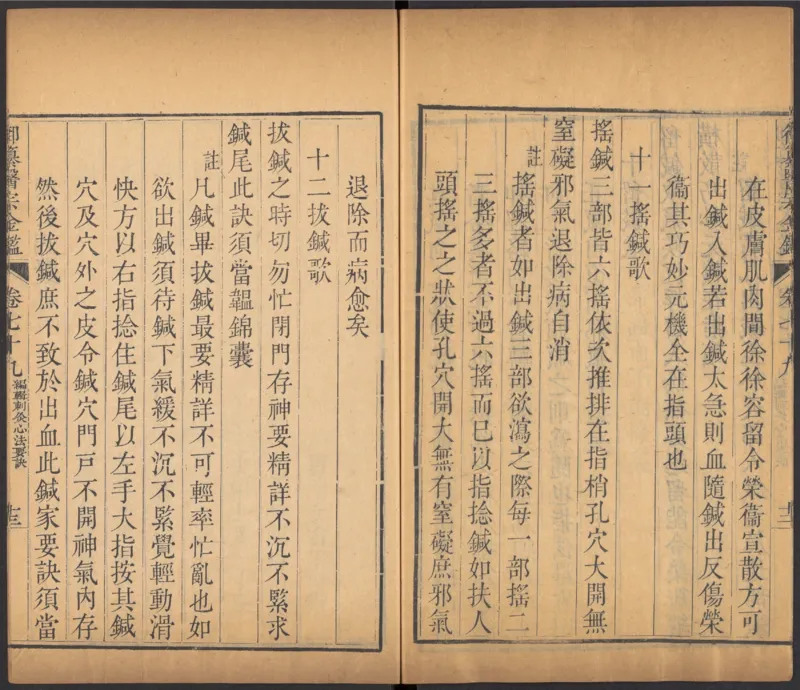 在皮膚肌肉間徐徐容留令榮衞宣散方可
出鍼入鍼若出鍼太急則血隨鍼出反傷榮
衞其巧妙元機全在指頭也
十一搖鍼歌
搖鍼三部皆六搖依次推排在指梢孔穴大開無
窒礙邪氣退除病自消
註搖鍼者如出鍼三部欲瀉之際每一部搖二
三搖多者不過六搖而已以指捻鍼如扶人
頭搖之之狀使孔穴開大無有窒礙庶邪氣
退除而病愈矣
十二拔鍼歌
拔鍼之時切勿忙閉門存神要精詳不沉不緊求
鍼尾此訣須當韞錦囊
註凡鍼畢拔鍼最要精詳不可輕率忙亂也如
欲出鍼須待鍼下氣緩不沉不緊覺輕動滑
快方以右指捻住鍼尾以左手大指按其鍼
穴及穴外之皮令鍼穴門戸不開神氣內存
然後拔鍼庶不致於出血此鍼家要訣須當
御纂醫宗金鑑 卷七十九 編輯刺灸心法要訣 十三